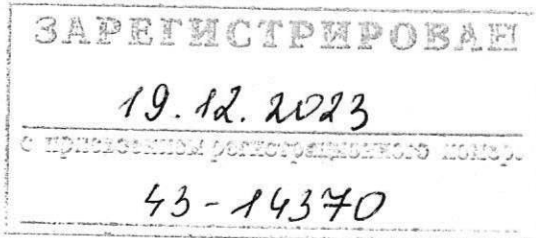 ЗАРЕГИСТРИРОВАН
19.12.2023
с присвоением регистрационного номера
43-14370